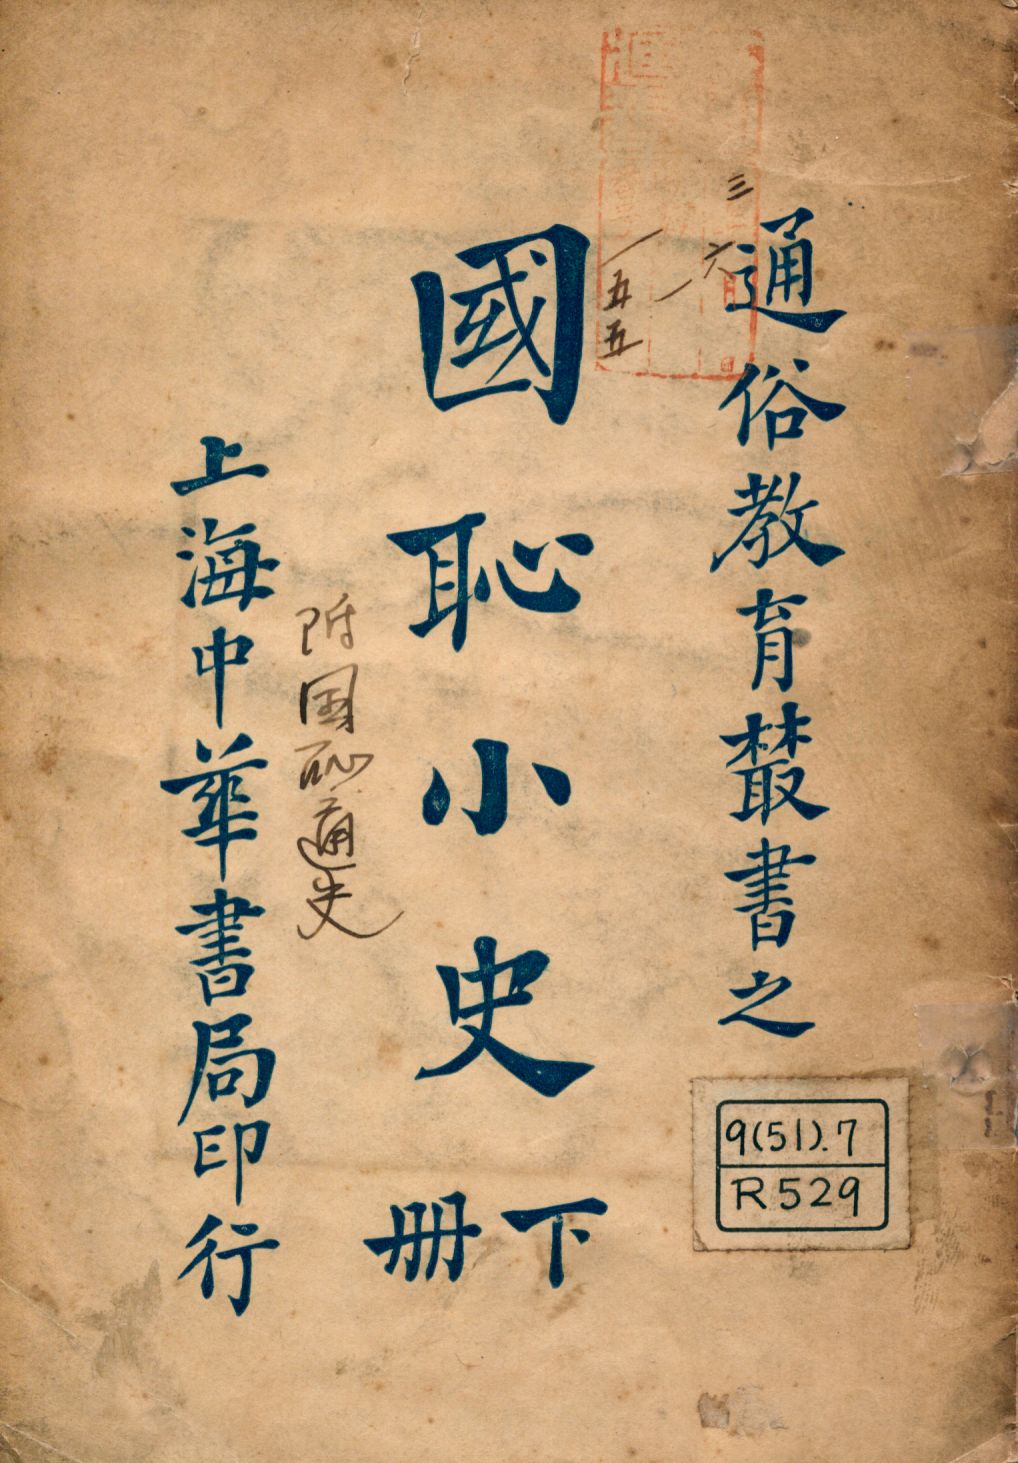 通俗教育叢書之
國恥小史
下册
附国恥通史
上海中華書局印行
三
六
一
一五五
9(51).7
R529